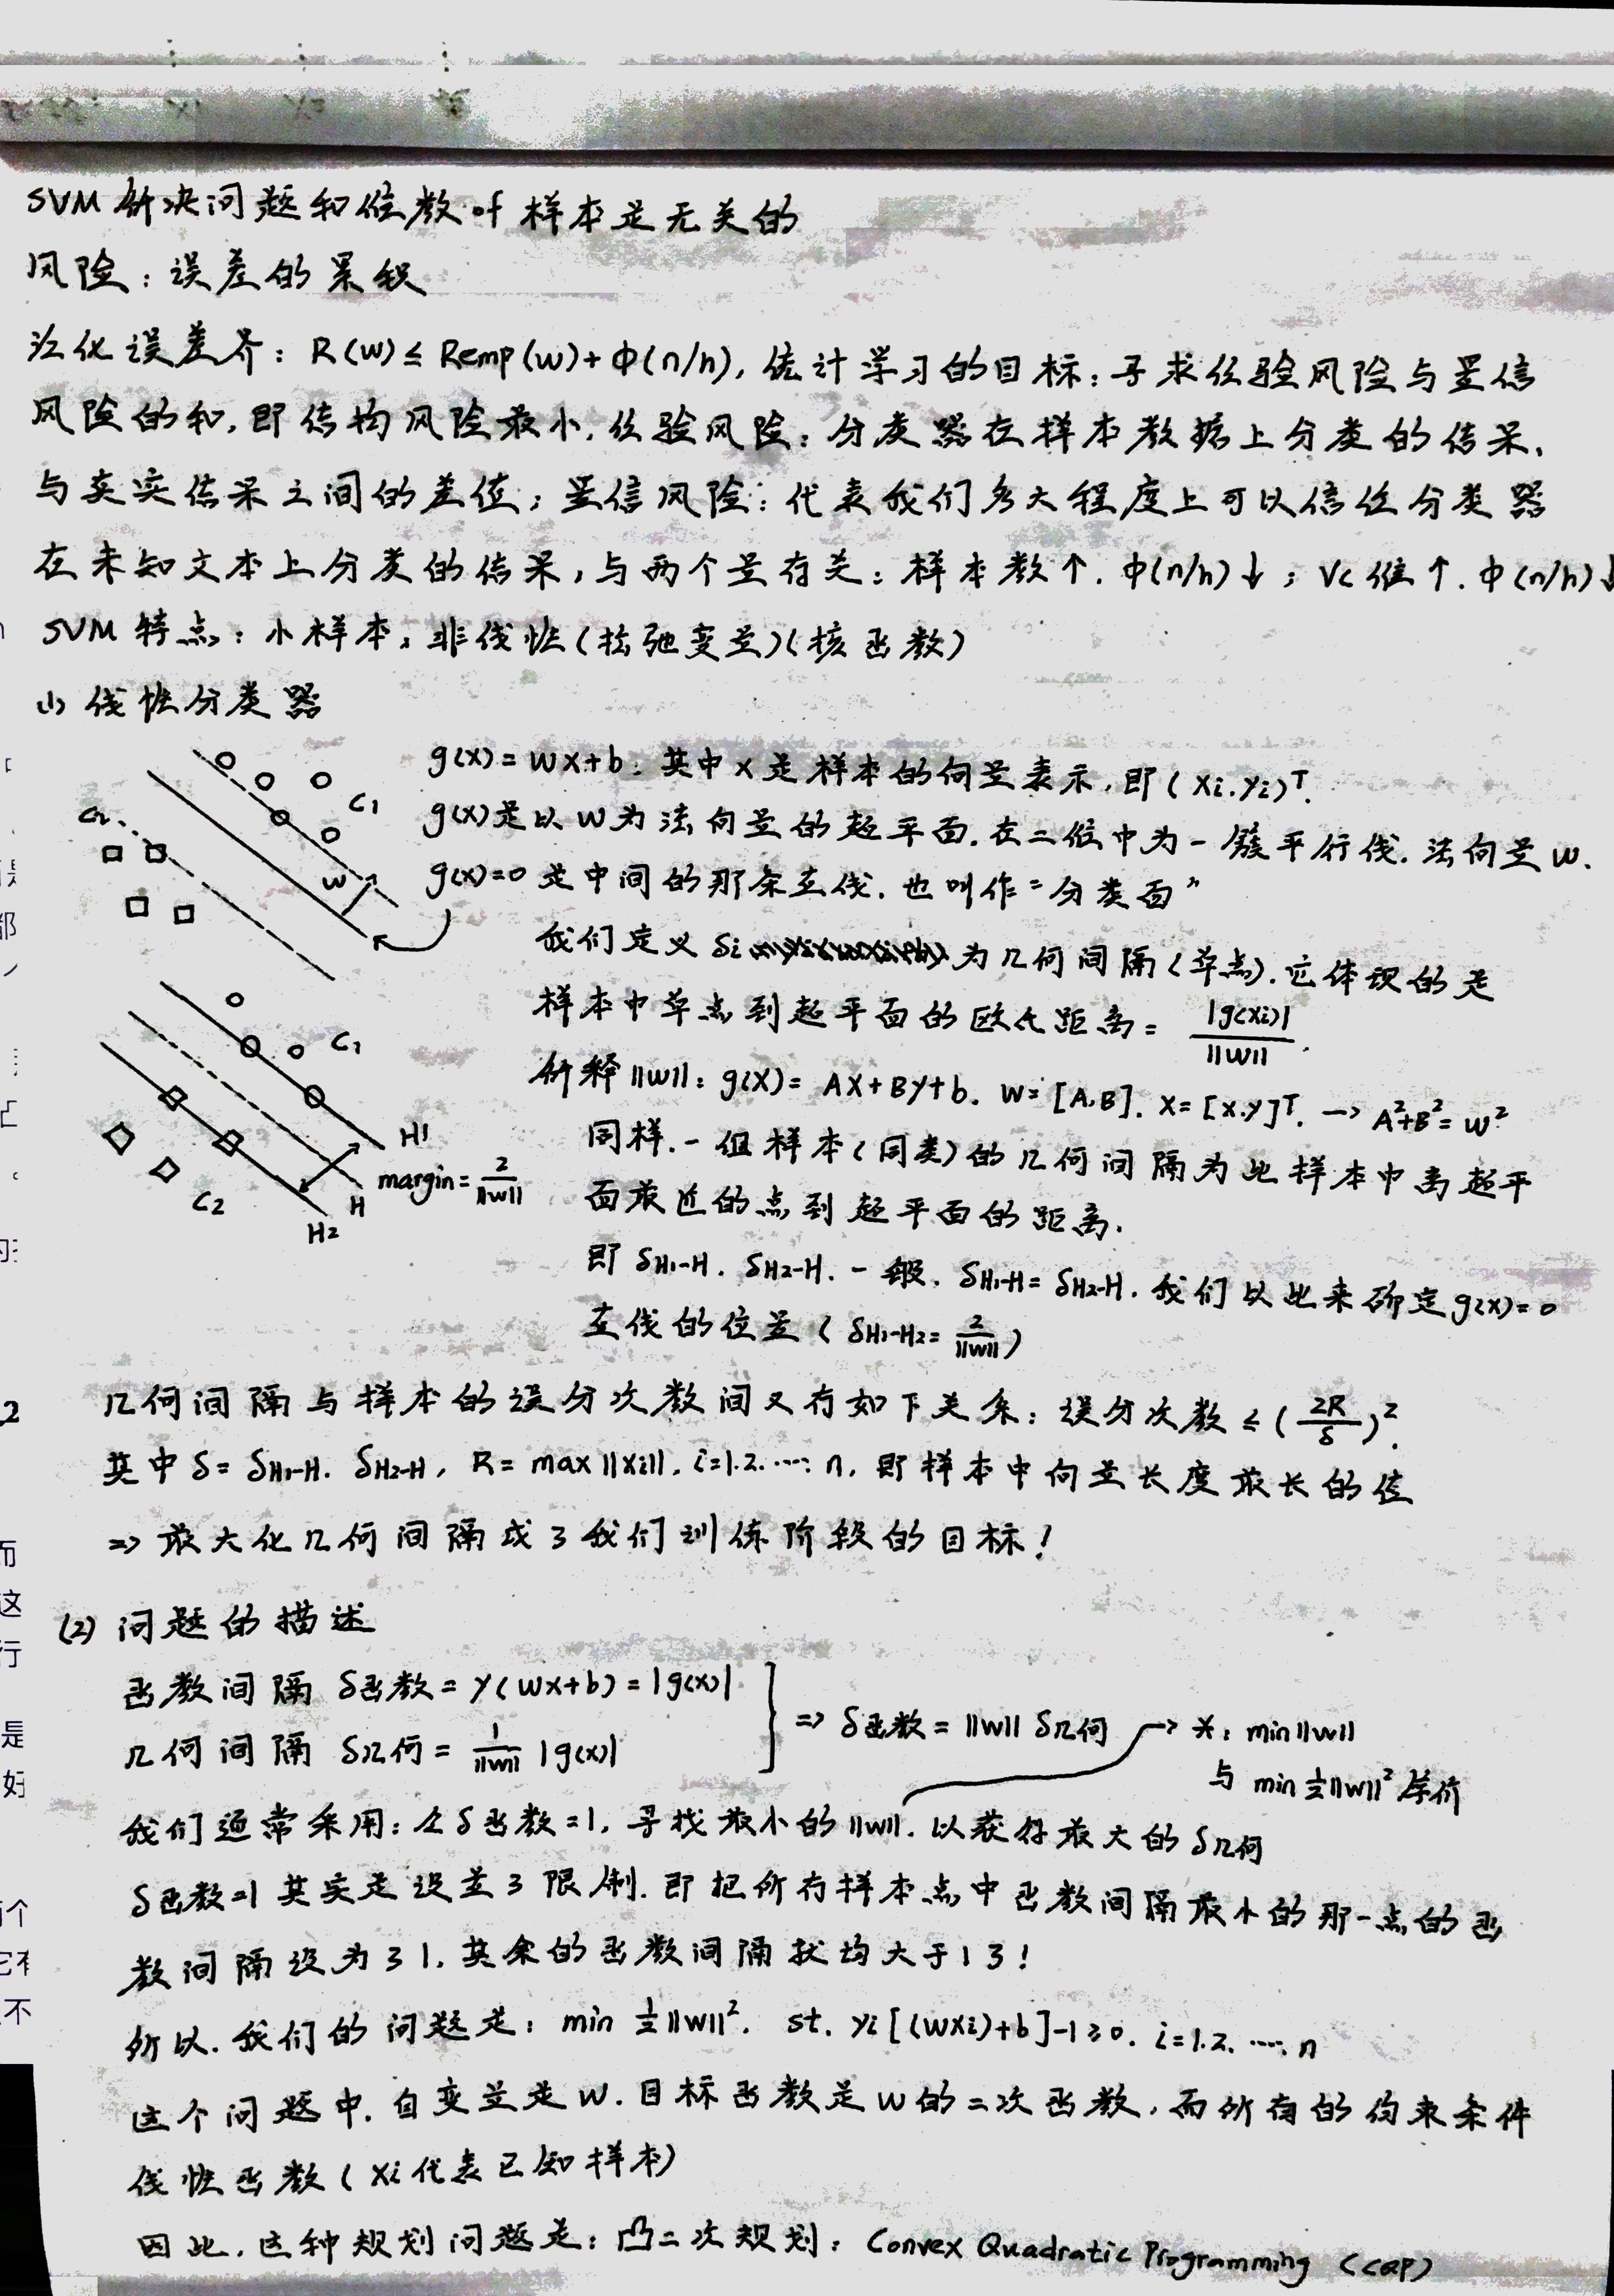 SVM 解决问题和维数 of 样本是无关的
风险：误差的累积
泛化误差界：R(w) ≤ Remp(w)+Φ(n/h), 统计学习的目标：寻求经验风险与置信
风险的和, 即结构风险最小, 经验风险：分类器在样本数据上分类的结果,
与真实结果之间的差值；置信风险：代表我们多大程度上可以信任分类器
在未知文本上分类的结果, 与两个量有关：样本数↑. Φ(n/h)↓；VC维↑. Φ(n/h)↓
SVM 特点：小样本, 非线性(松弛变量)(核函数)
(1) 线性分类器
g(x)=wx+b：其中 x 是样本的向量表示, 即 (xi.yi)T.
g(x)是以 w 为法向量的超平面. 在二维中为一簇平行线. 法向量 w.
g(x)=0 是中间的那条直线. 也叫作“分类面”
C1
C2
w
我们定义 δi 为几何间隔(单点). 它体现的是
样本中单点到超平面的欧氏距离= |g(xi)|/||w||.
解释 ||w||: g(x)= Ax+By+b. w=[A,B]. x=[x.y]T. → A²+B²=w²
同样. 一组样本(同类)的几何间隔为此样本中离超平
面最近的点到超平面的距离.
即 δH1-H. δH2-H. 一般. δH1-H= δH2-H. 我们以此来确定g(x)=0
直线的位置 ( δH1-H2= 2/||w|| )
C1
H1
margin= 2/||w||
H
C2
H2
几何间隔与样本的误分次数间又有如下关系：误分次数 ≤ (2R/δ)².
其中 δ= δH1-H. δH2-H, R= max ||xi||, i=1.2.…. n, 即样本中向量长度最长的值
=> 最大化几何间隔成了我们训练阶段的目标！
(2) 问题的描述
函数间隔 δ函数= y(wx+b) = |g(x)|
几何间隔 δ几何= 1/||w|| |g(x)|
=> δ函数= ||w|| δ几何
→ *: min||w||
与 min ½||w||² 等价
我们通常采用：令 δ函数=1, 寻找最小的||w||. 以获得最大的 δ几何
δ函数=1 其实是设置了限制. 即把所有样本点中函数间隔最小的那一点的函
数间隔设为了1, 其余的函数间隔就均大于1了！
所以. 我们的问题是：min ½||w||². st. yi[(wxi)+b]-1≥0. i=1.2. …. n
这个问题中. 自变量是 w. 目标函数是 w 的二次函数, 而所有的约束条件
线性函数 ( xi代表已知样本)
因此. 这种规划问题是：凸二次规划：Convex Quadratic Programming (CQP)